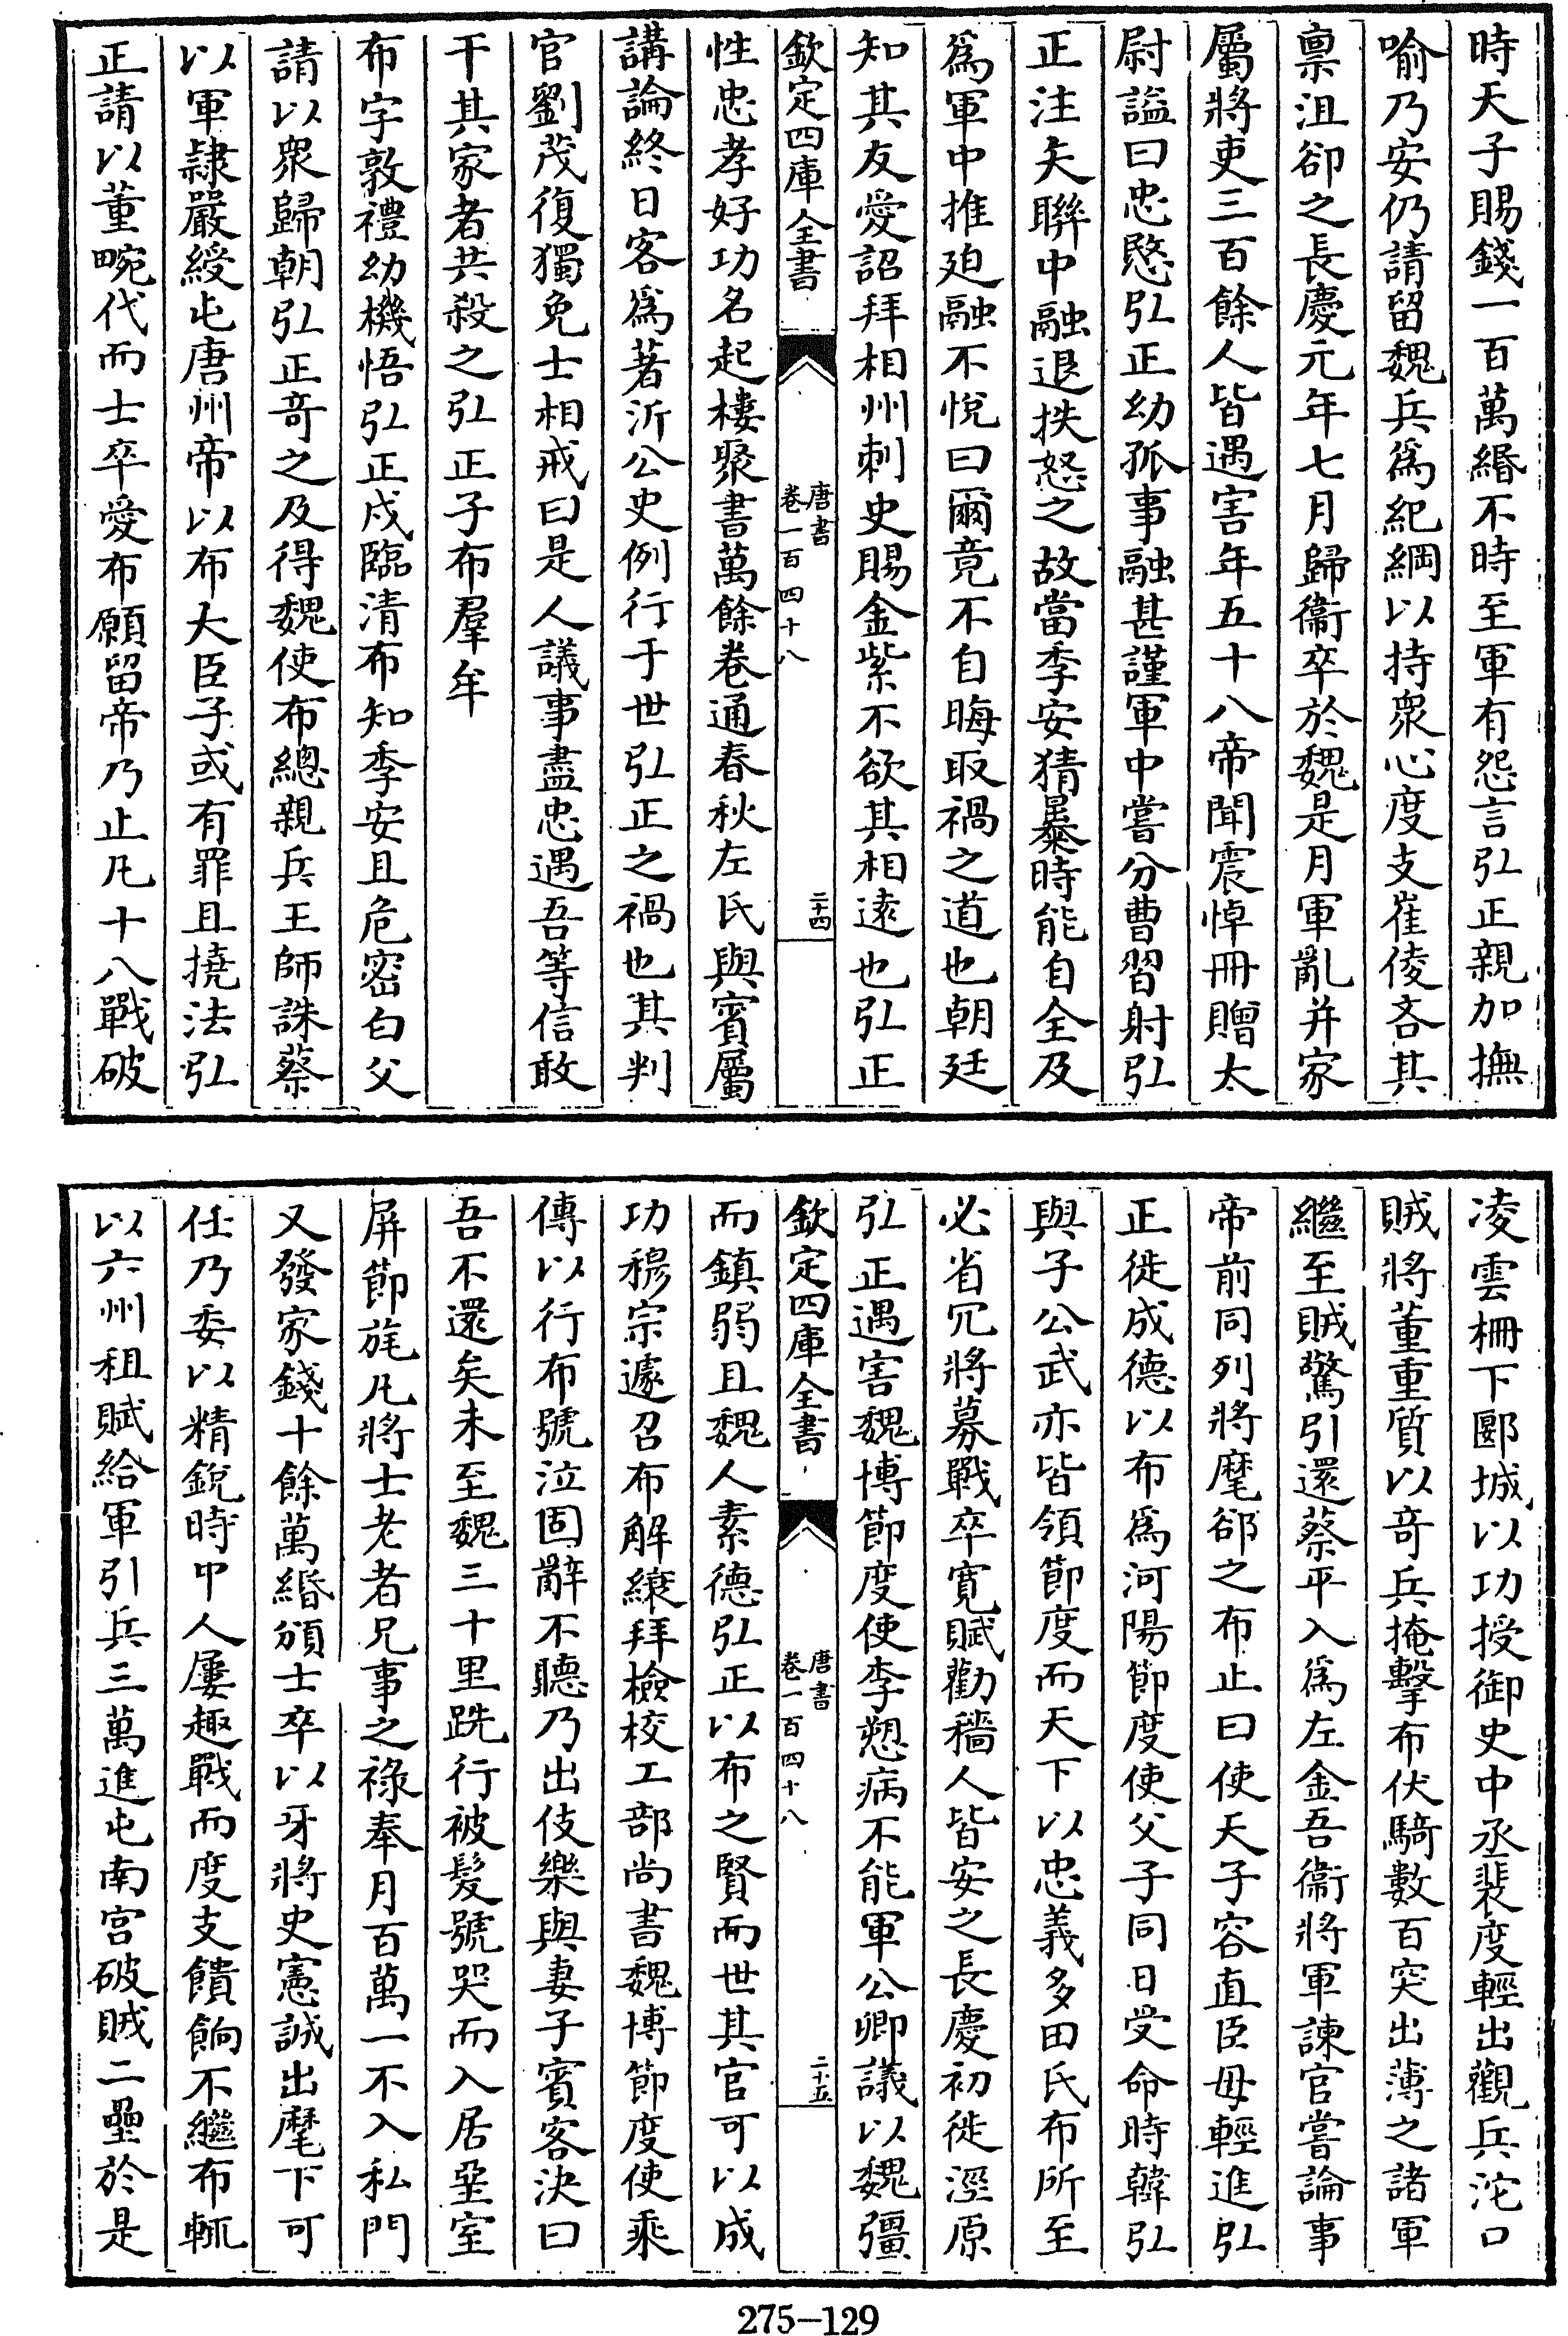 時天子賜錢一百萬緡不時至軍有怨言弘正親加撫
喻乃安仍請留魏兵爲紀綱以持衆心度支崔倰吝其
禀沮卻之長慶元年七月歸衞卒於魏是月軍亂并家
屬將吏三百餘人皆遇害年五十八帝聞震悼冊贈太
尉諡曰忠愍弘正幼孤事融甚謹軍中嘗分曹習射弘
正注矢聯中融退抶怒之故當季安猜暴時能自全及
爲軍中推廹融不悅曰爾竟不自晦取禍之道也朝廷
知其友愛詔拜相州刺史賜金紫不欲其相逺也弘正
欽定四庫全書
唐書
卷一百四十八
二十四
性忠孝好功名起樓聚書萬餘卷通春秋左氏與賓屬
講論終日客爲著沂公史例行于世弘正之禍也其判
官劉茂復獨免士相戒曰是人議事盡忠遇吾等信敢
干其家者共殺之弘正子布羣牟
布字敦禮幼機悟弘正戍臨清布知季安且危密白父
請以衆歸朝弘正奇之及得魏使布總親兵王師誅蔡
以軍隷嚴綬屯唐州帝以布大臣子或有罪且撓法弘
正請以董畹代而士卒愛布願留帝乃止凡十八戰破
凌雲柵下郾城以功授御史中丞裴度輕出觀兵沱口
賊將董重質以奇兵掩擊布伏騎數百突出薄之諸軍
繼至賊驚引還蔡平入爲左金吾衞將軍諫官嘗論事
帝前同列將麾郤之布止曰使天子容直臣毋輕進弘
正徙成德以布爲河陽節度使父子同日受命時韓弘
與子公武亦皆領節度而天下以忠義多田氏布所至
必省冗將募戰卒寛賦勸穡人皆安之長慶初徙涇原
弘正遇害魏博節度使李愬病不能軍公卿議以魏彊
欽定四庫全書
唐書
卷一百四十八
二十五
而鎮弱且魏人素德弘正以布之賢而世其官可以成
功穆宗遽召布解縗拜檢校工部尚書魏博節度使乘
傳以行布號泣固辭不聽乃出伎樂與妻子賓客決曰
吾不還矣未至魏三十里跣行被髮號哭而入居堊室
屏節旄凡將士老者兄事之祿奉月百萬一不入私門
又發家錢十餘萬緡頒士卒以牙將史憲誠出麾下可
任乃委以精銳時中人屢趣戰而度支饋餉不繼布輒
以六州租賦給軍引兵三萬進屯南宫破賊二壘於是
275-129